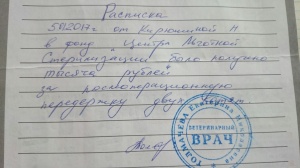 Расписка
5.XI.2017г от Кирюшиной Н
в фонд "Центр Льготной
Стерилизации" было получено
тысяча рублей
за послеоперационную
передержку двух
ТОЛМАЧЕВА Екатерина
ВЕТЕРИНАРНЫЙ
ВРАЧ